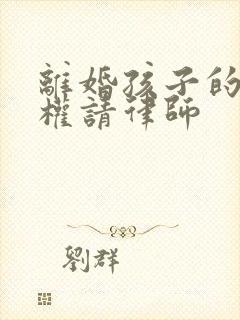 離婚孩子的
權請律師
劉群